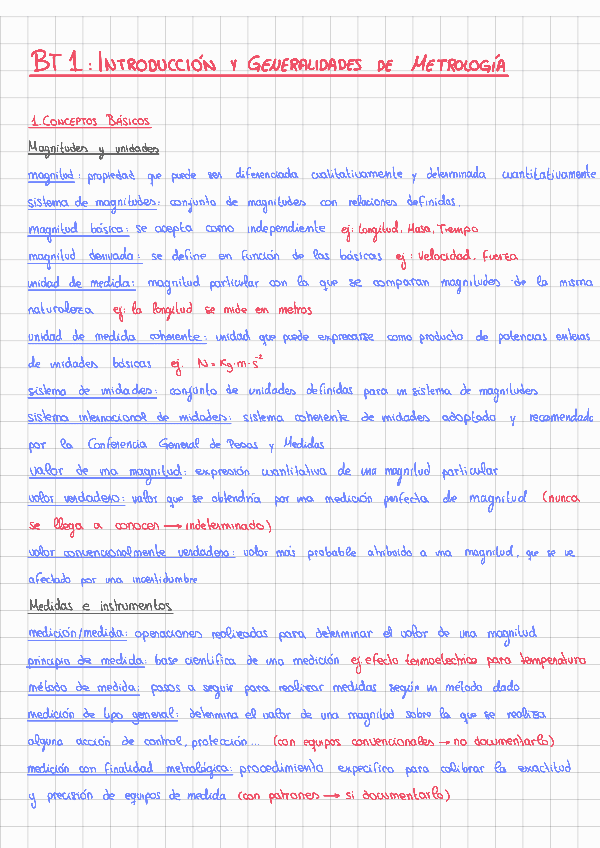 BT 1: INTRODUCCIÓN Y GENERALIDADES DE METROLOGÍA
1. CONCEPTOS BÁSICOS
Magnitudes y unidades
magnitud: propiedad que puede ser diferenciada cualitativamente y determinada cuantitativamente
sistema de magnitudes: conjunto de magnitudes con relaciones definidas.
magnitud básica: se acepta como independiente ej: longitud, Masa, Tiempo
magnitud derivada: se define en función de las básicas ej: Velocidad, Fuerza
unidad de medida: magnitud particular con la que se comparan magnitudes de la misma
naturaleza ej: la longitud se mide en metros
unidad de medida coherente: unidad que puede expresarse como producto de potencias enteras
de unidades básicas ej. N = Kg·m·s⁻²
sistema de unidades: conjunto de unidades definidas para un sistema de magnitudes
sistema internacional de unidades: sistema coherente de unidades adoptado y recomendado
por la Conferencia General de Pesas y Medidas
valor de una magnitud: expresión cuantitativa de una magnitud particular
valor verdadero: valor que se obtendría por una medición perfecta de magnitud (nunca
se llega a conocer → indeterminado)
valor convencionalmente verdadero: valor más probable atribuido a una magnitud, que se ve
afectado por una incertidumbre
Medidas e instrumentos
medición/medida: operaciones realizadas para determinar el valor de una magnitud
principio de medida: base científica de una medición ej efecto termoelectrico para temperatura
método de medida: pasos a seguir para realizar medidas según un método dado
medición de tipo general: determina el valor de una magnitud sobre la que se realiza
alguna acción de control, protección... (con equipos convencionales → no documentarlo)
medición con finalidad metrológica: procedimiento especifico para calibrar la exactitud
y precisión de equipos de medida (con patrones → si documentarlo)